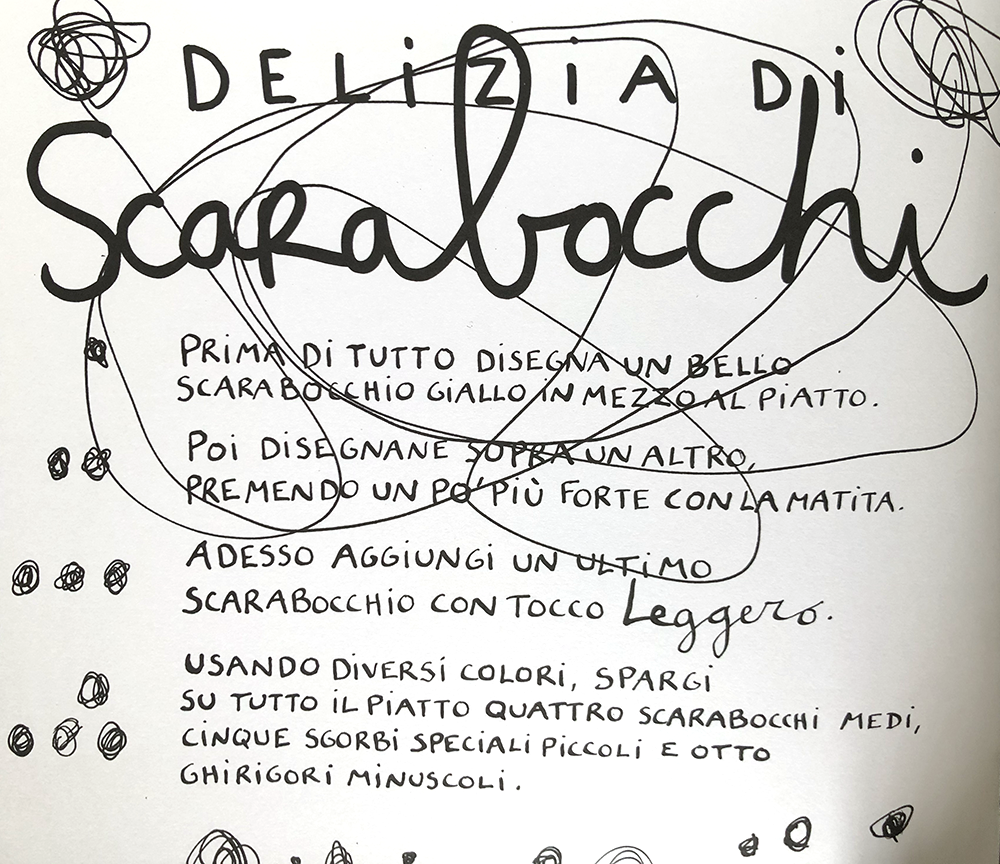 DELIZIA DI
Scarabocchi
PRIMA DI TUTTO DISEGNA UN BELLO
SCARABOCCHIO GIALLO IN MEZZO AL PIATTO.
POI DISEGNANE SOPRA UN ALTRO,
PREMENDO UN PO' PIÙ FORTE CON LA MATITA.
ADESSO AGGIUNGI UN ULTIMO
SCARABOCCHIO CON TOCCO Leggero.
USANDO DIVERSI COLORI, SPARGI
SU TUTTO IL PIATTO QUATTRO SCARABOCCHI MEDI,
CINQUE SGORBI SPECIALI PICCOLI E OTTO
GHIRIGORI MINUSCOLI.